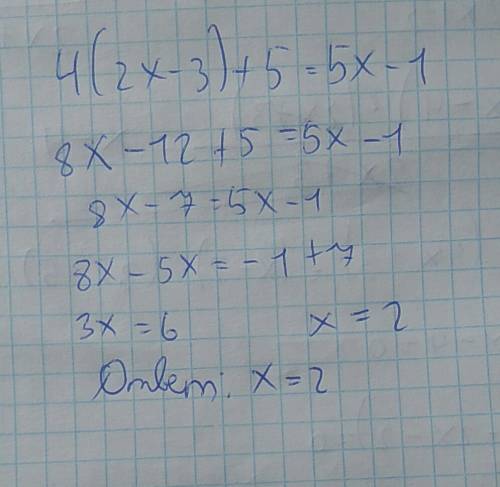 4(2x-3)+5=5x-1
8x-12+5=5x-1
8x-7=5x-1
8x-5x=-1+7
3x=6 x=2
Ответ: x=2